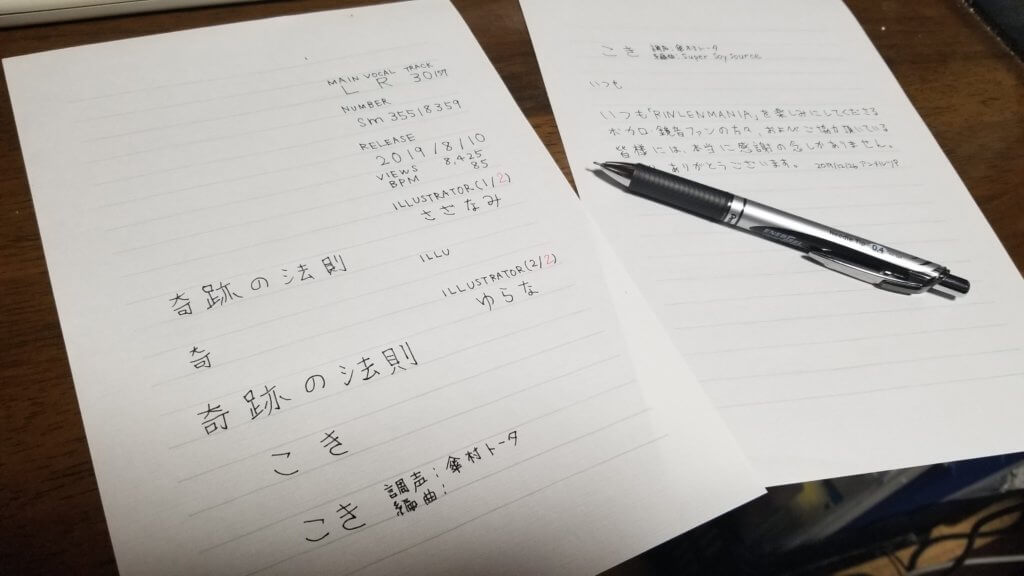 MAIN VOCAL TRACK
L R 30157
NUMBER
sm 35518359
RELEASE
2019/8/10
VIEWS 8,425
BPM 85
ILLUSTRATOR(1/2)
さざなみ
奇跡の法則
ILLU
ILLUSTRATOR(2/2)
ゆらな
奇
奇跡の法則
こき
こき 調声:傘村トータ
編曲:
こき 調声:傘村トータ
編曲:Super Soy Source
いつも
いつも「RINLENMANIA」を楽しみにしてくださる
ボカロ・鏡音ファンの方々、およびご協力頂いている
皆様には、本当に感謝の念しかありません。
ありがとうございます。 2019/12/26
Needle Tip 0.4
ENERGEL